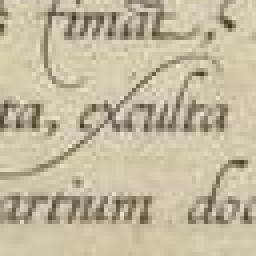 timat,
ta, exculta
artium doc